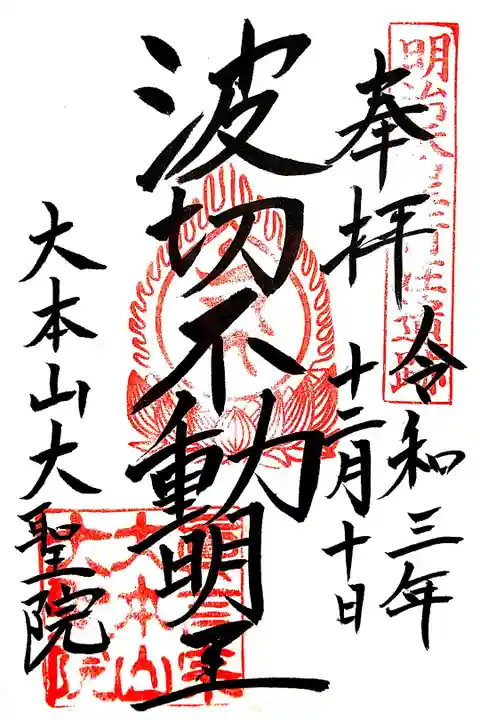 奉拝
令和三年
十二月十日
波切不動明王
大本山大聖院